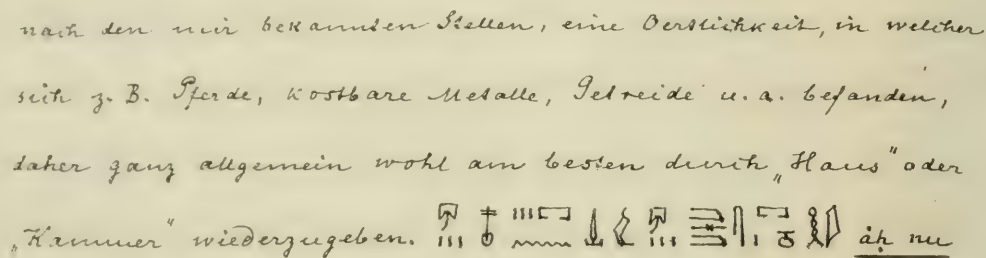 nach den mir bekannten Stellen, eine Oertlichkeit, in welcher
sich z. B. Pferde, kostbare Metalle, Getreide u. a. befanden,
daher ganz allgemein wohl am besten durch „Haus" oder
„Kammer" wiederzugeben. āḥ nu